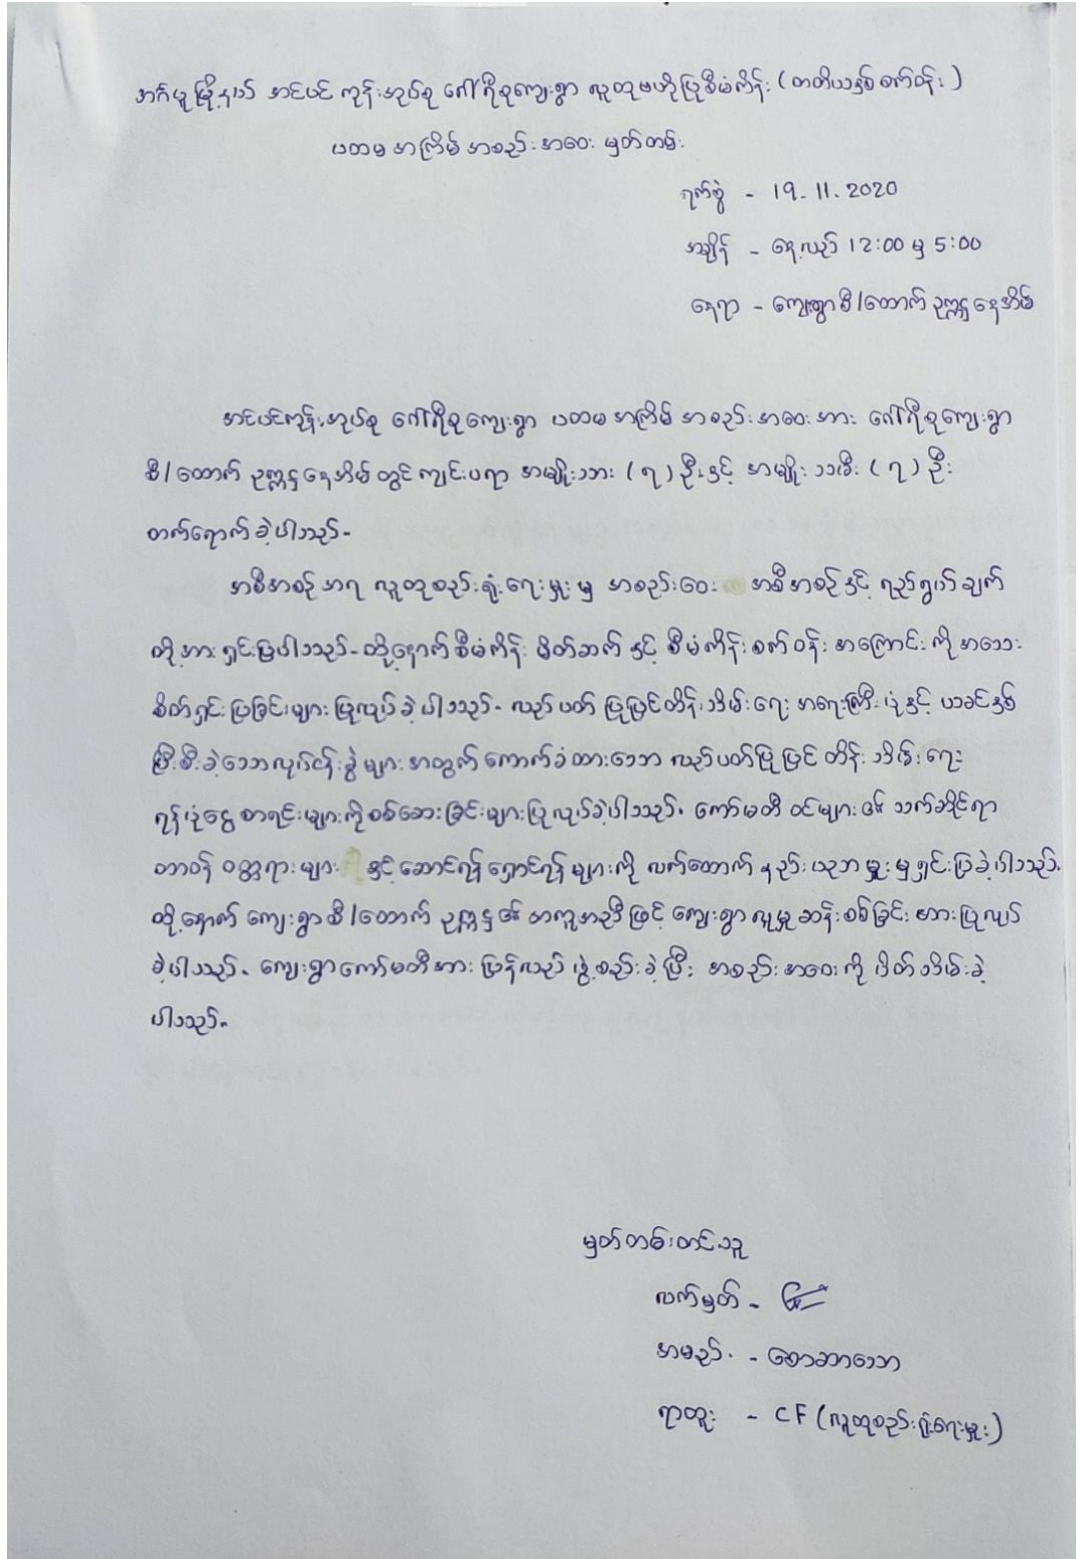 အင်ပင် ကုန်းအုပ်စု ဒေါ်ဂျီစုကျေးရွာ လူထုဗဟိုပြုစီမံကိန်း (တတိယနှစ်စက်ဝန်း)
ပထမ အကြိမ် အစည်းအဝေး မှတ်တမ်း
ရက်စွဲ - 19.11.2020
အချိန် - နေ့လည် 12:00 မှ 5:00
နေရာ - ကျေးရွာစီ/ထောက် ဥက္ကဋ္ဌနေအိမ်
အင်ပင်ကုန်းအုပ်စု ကျေးရွာ ပထမ အကြိမ် အစည်းအဝေးအား ကျေးရွာ
စီ/ထောက် ဥက္ကဋ္ဌနေအိမ်တွင် ကျင်းပရာ အမျိုးသား (၇) ဦးနှင့် အမျိုးသမီး (၇) ဦး
တက်ရောက်ခဲ့ပါသည်။
အစီအစဉ်အရ လူထုစည်းရုံးရေးမှူးမှ အစည်းဝေး အစီအစဉ်နှင့် ရည်ရွယ်ချက်
တို့အား ရှင်းပြပါသည်။ ထို့နောက် စီမံကိန်း မိတ်ဆက် နှင့် စီမံကိန်းစက်ဝန်း အကြောင်းကို အသေး
စိတ်ရှင်းပြခြင်းများ ပြုလုပ်ခဲ့ပါသည်။ လည်ပတ် ပြုပြင်ထိန်းသိမ်းရေး အရေးကြီးပုံနှင့် ယခင်နှစ်
ပြီးစီးခဲ့သော လုပ်ငန်းခွဲများအတွက် ကောက်ခံထားသော လည်ပတ်ပြုပြင် ထိန်းသိမ်းရေး
ရန်ပုံငွေ စာရင်းများကို စစ်ဆေးခြင်းများပြုလုပ်ခဲ့ပါသည်။ ကော်မတီ ဝင်များ၏ သက်ဆိုင်ရာ
တာဝန် ဝတ္တရားများ နှင့် ဆောင်ရန်ရှောင်ရန်များကို လက်ထောက် နည်းပညာမှူးမှ ရှင်းပြခဲ့ပါသည်။
ထို့နောက် ကျေးရွာစီ/ထောက် ဥက္ကဋ္ဌ၏ အကူအညီဖြင့် ကျေးရွာ လူမှုဆန်းစစ်ခြင်း အားပြုလုပ်
ခဲ့ပါသည်။ ကျေးရွာကော်မတီအား ပြန်လည် ဖွဲ့စည်းခဲ့ပြီး အစည်းအဝေးကို ပိတ်သိမ်းခဲ့
ပါသည်။
မှတ်တမ်းတင်သူ
လက်မှတ် -
အမည် - စောဆာသော
ရာထူး - CF (လူထုစည်းရုံးရေးမှူး)